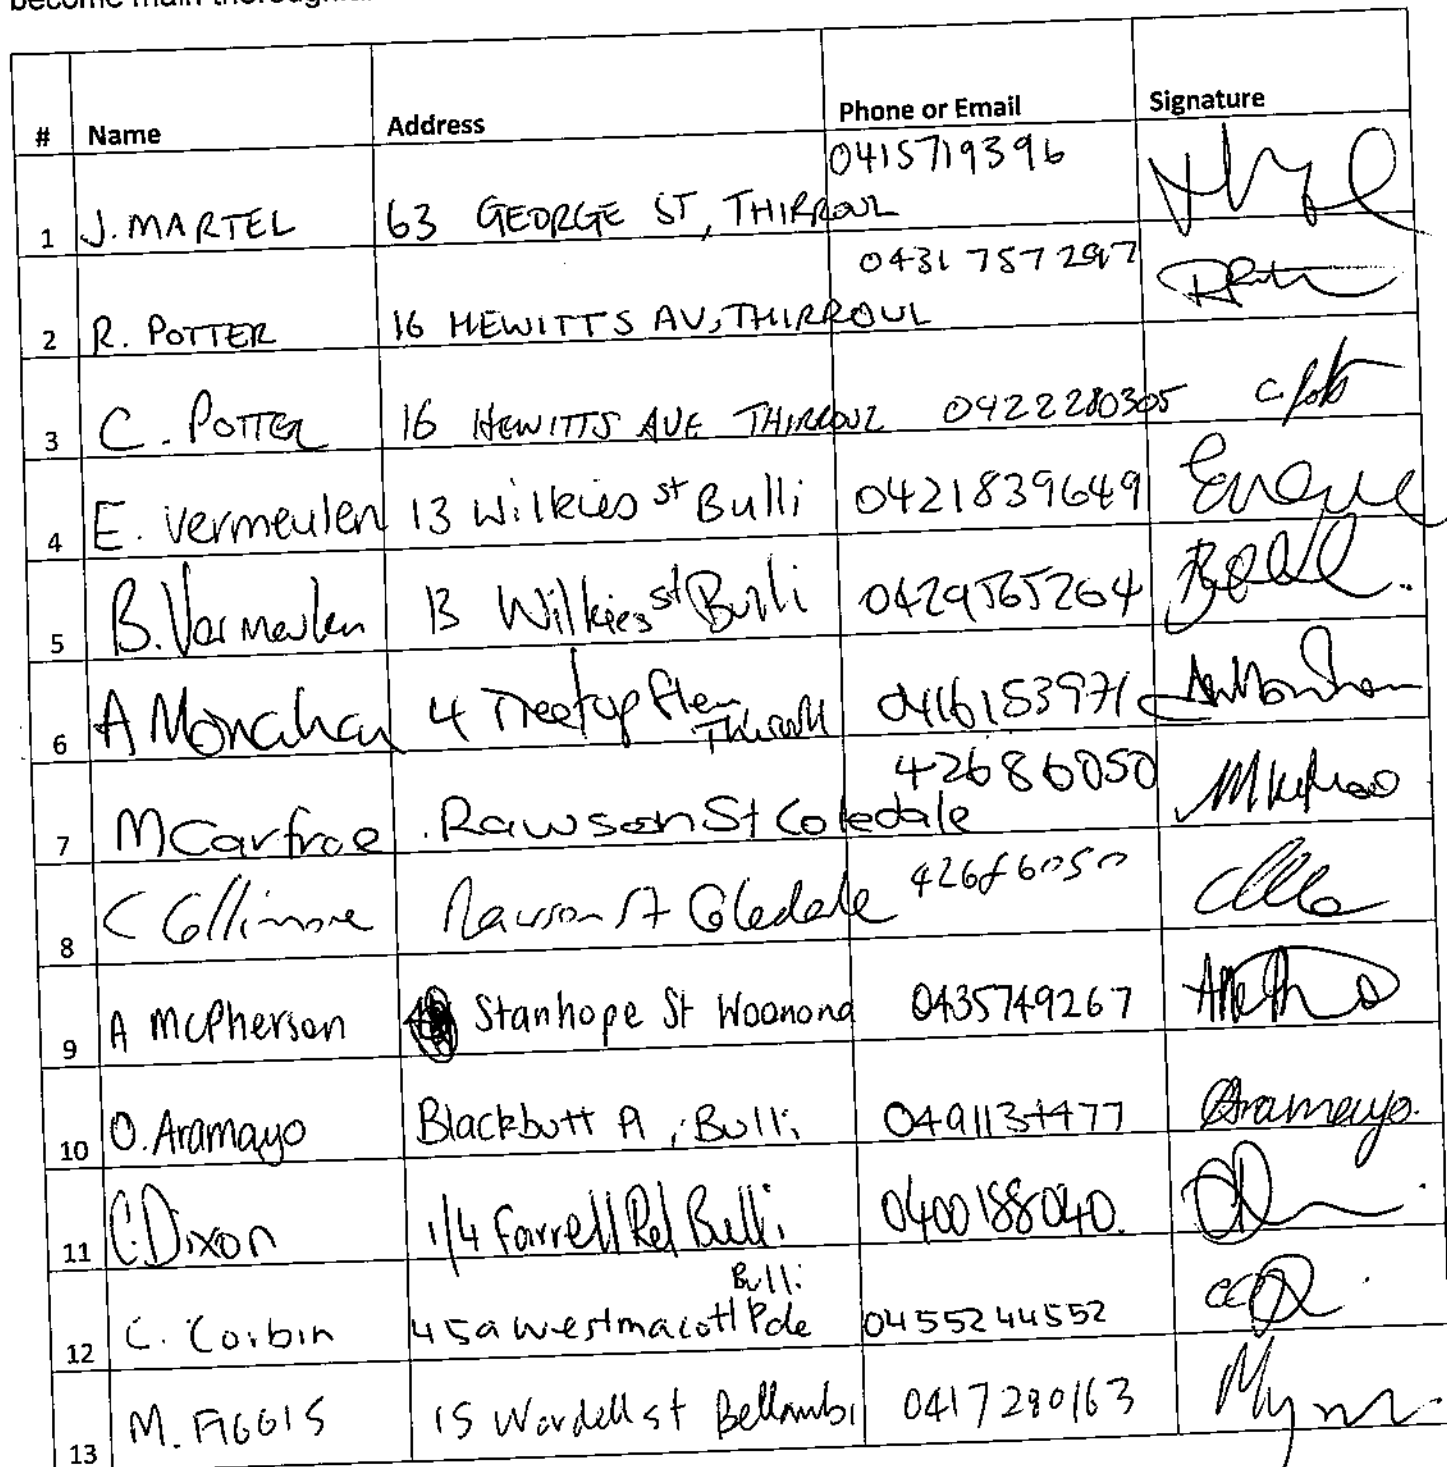 become main thorough
# Name Address Phone or Email Signature
1 J. MARTEL 63 GEORGE ST, THIRROUL 0415719396
2 R. POTTER 16 HEWITTS AV, THIRROUL 0431 757 297
3 C. POTTER 16 HEWITTS AVE THIRROUL 0422280305
4 E. Vermeulen 13 Wilkies st Bulli 0421839649
5 B. Vermeulen 13 Wilkies st Bulli 0429565264
6 A Monahan 4 Treetop Glen Thirroul 0416153971
7 M Carfrae Rawson St Coledale 42686050
8 C Collimore Rawson St Coledale 42686050
9 A McPherson Stanhope St Woonona 0435749267
10 O. Aramayo Blackbutt Bulli Aramayo.
11 C. Dixon 1/4 Farrell Rd Bulli 0400188040.
12 C. Corbin 45a Westmacott Pde Bulli 0455244552
13 M. FIGGIS 15 Wardell st Bellambi 0417280163